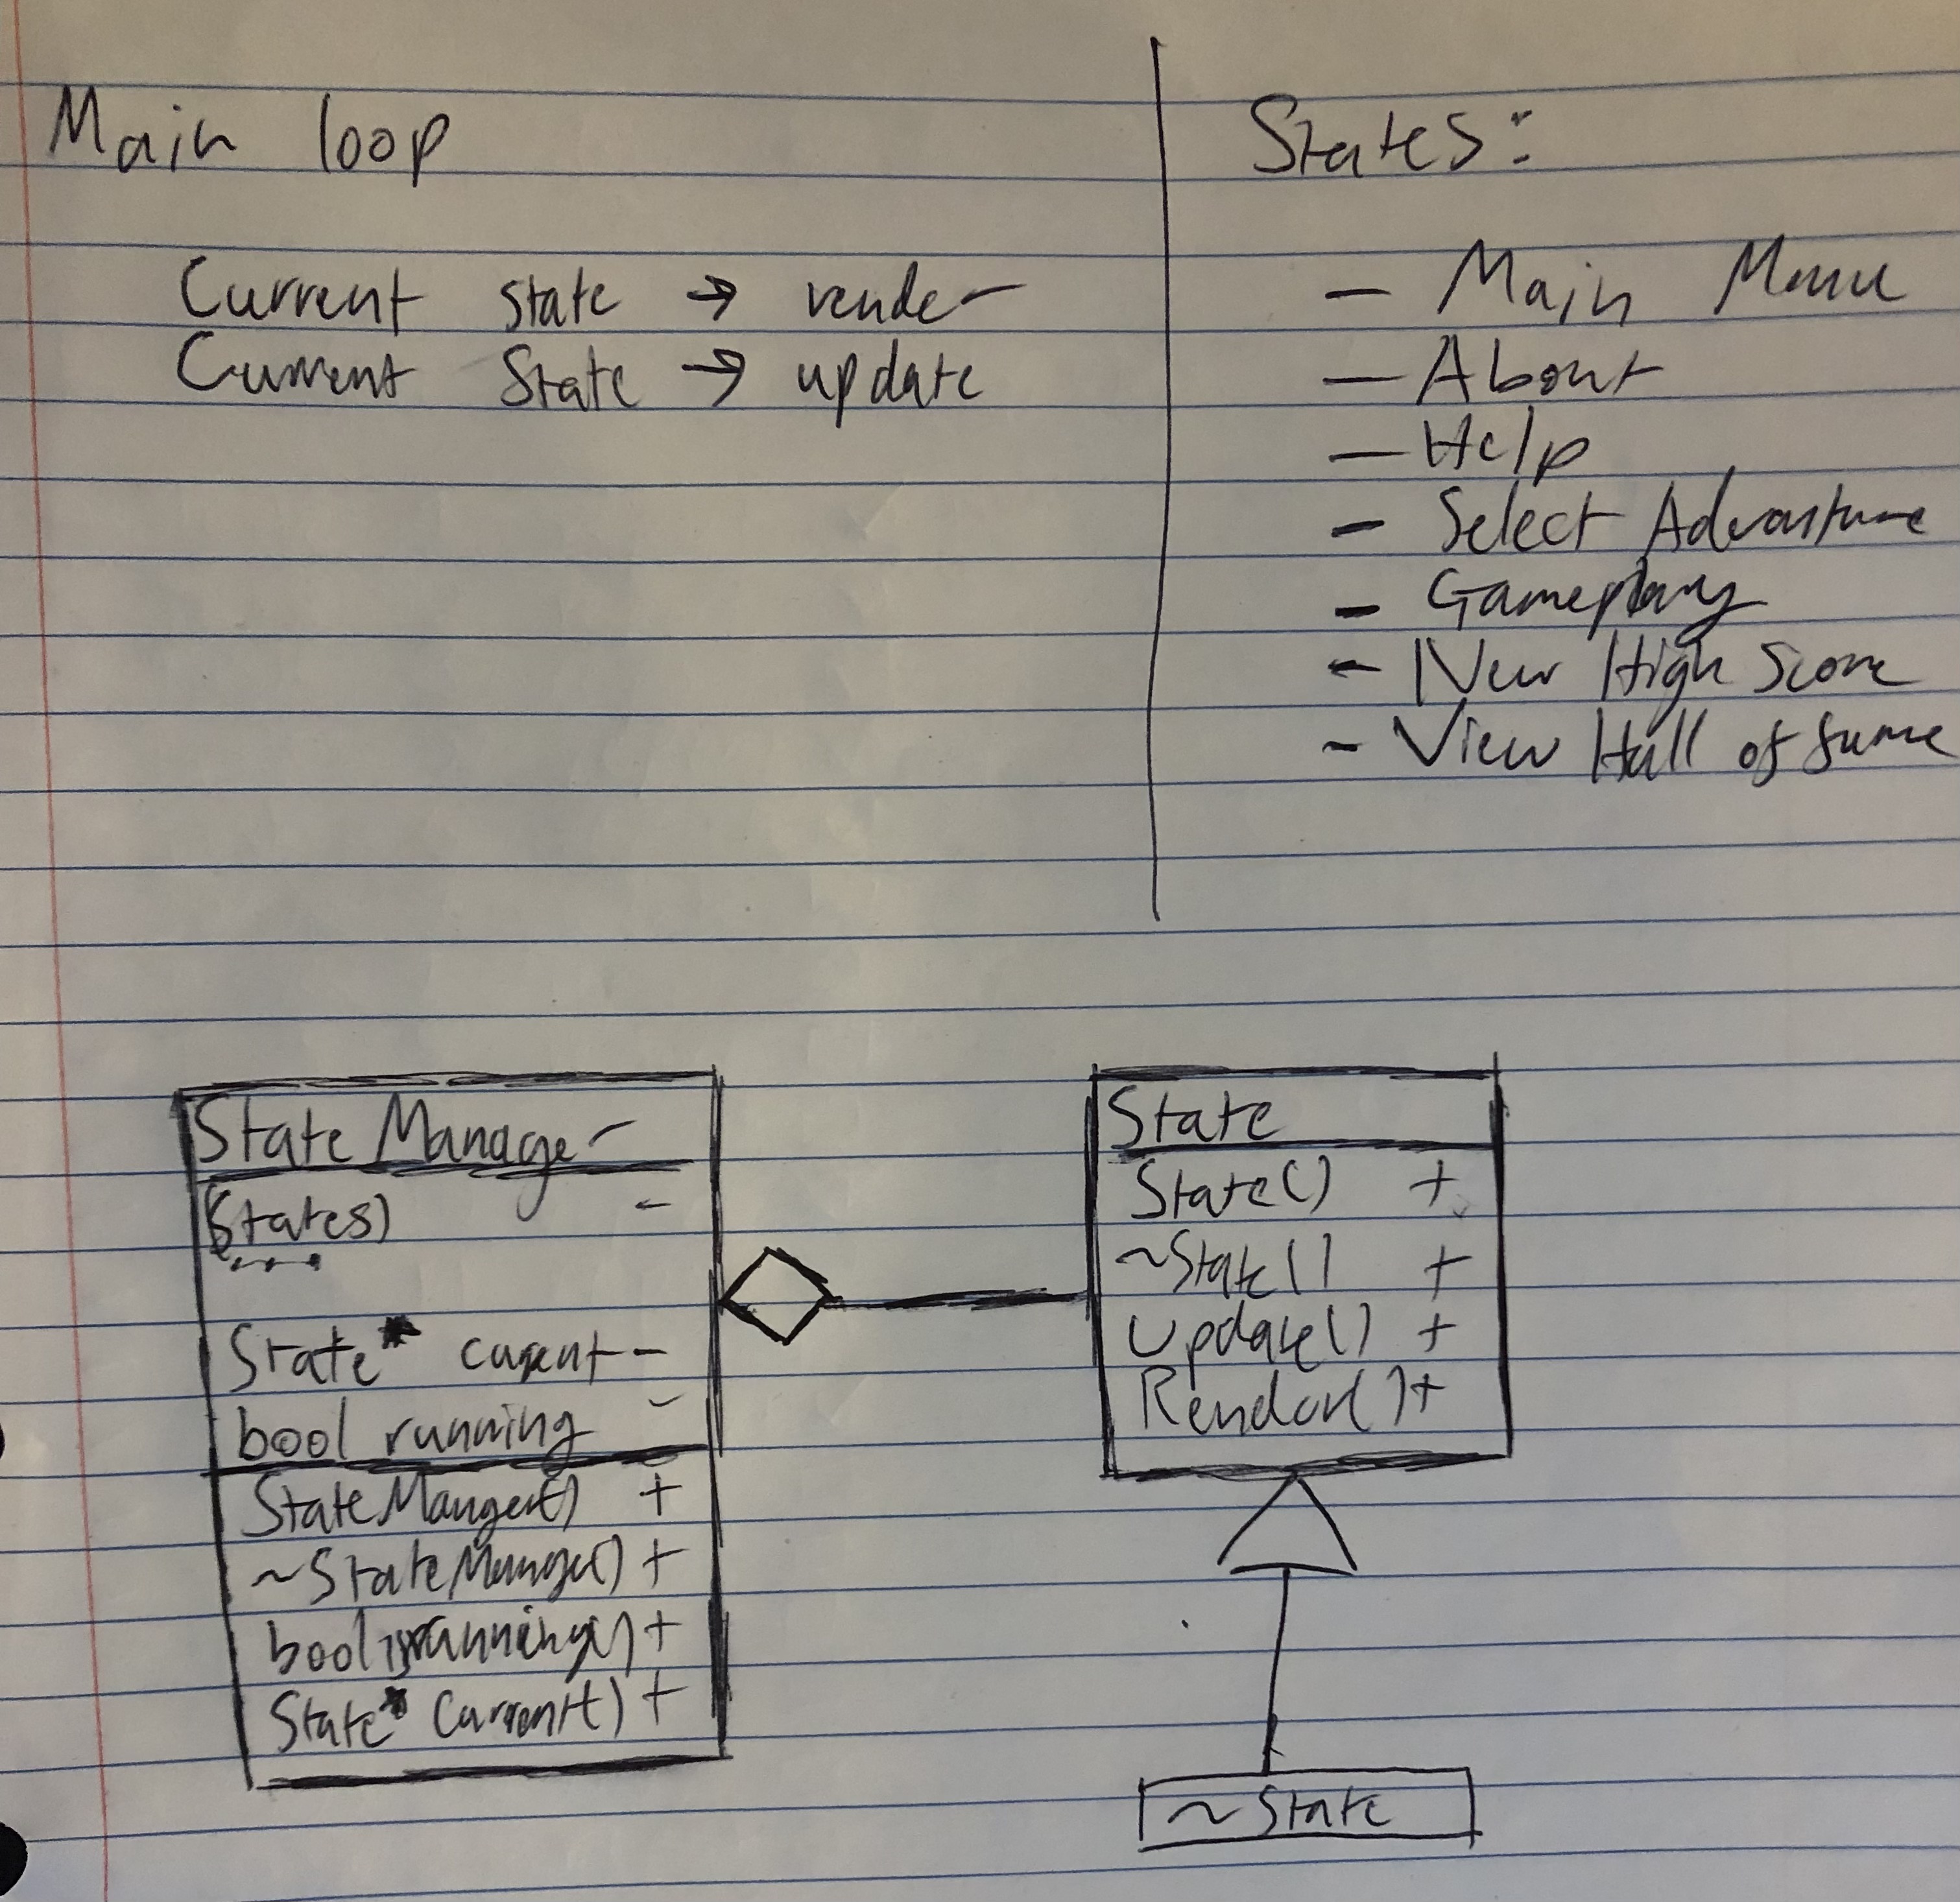 Main loop
Current state → render
Current State → update
States:
— Main Menu
— About
— Help
- Select Adventure
- Gameplay
- New High Score
~ View Hall of fame
State Manager
(States) -
State* current -
bool running -
StateManger() +
~StateManger() +
bool isrunning() +
State* Current() +
State
State() +
~State() +
Update() +
Render() +
~State